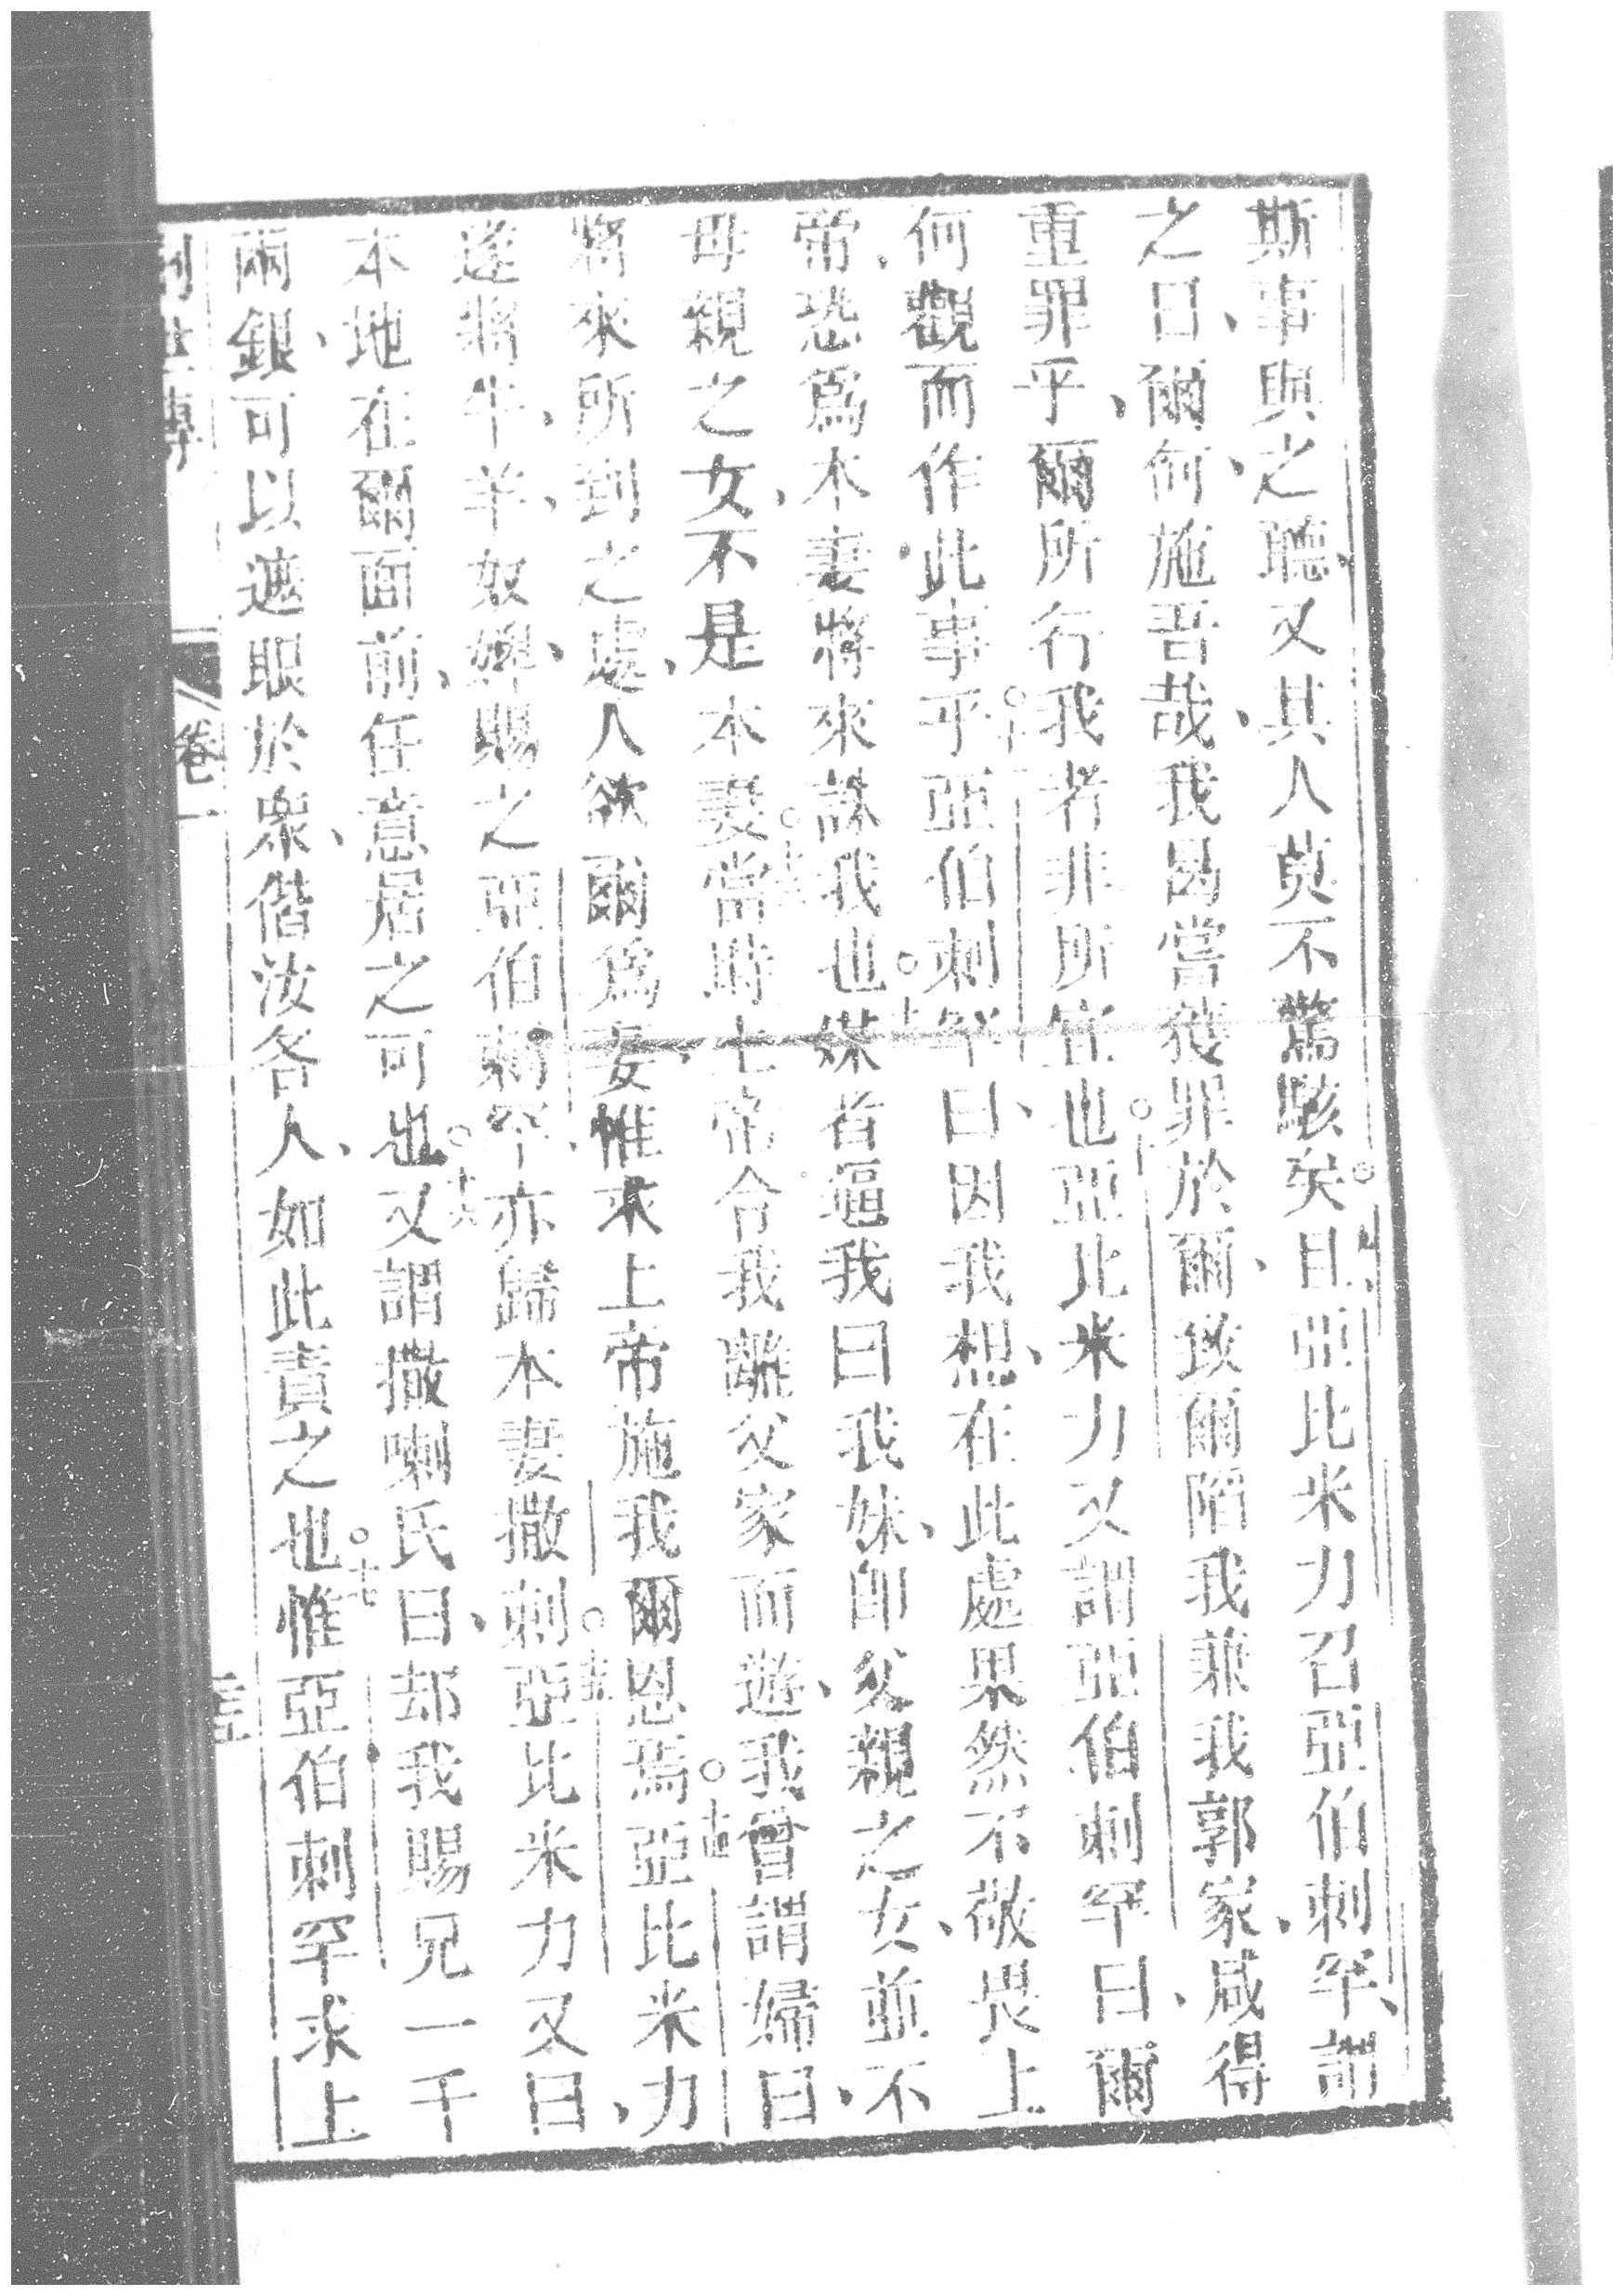 斯事與之聽、又其人莫不驚駭矣。且、亞比米力召亞伯剌罕、謂
之曰、爾何、施吾哉、我曷當獲罪於爾、致爾陷我兼我郭家、咸得
重罪乎、爾所行我者非所宜也。十亞比米力又謂亞伯剌罕曰、爾
何觀而作此事乎。亞伯剌罕曰、因我想、在此處果然不敬畏上
帝、恐爲本妻將來誅我也。十媒者逼我曰我妹、卽父親之女、並不
母親之女、不是本妻。當時上帝令我離父家而遊、我曾謂婦曰、
將來所到之處、人欲爾爲妻、惟求上帝施我爾恩焉。十四亞比米力
遂將牛、羊、奴婢、賜之亞伯剌罕、亦歸本妻撒剌。十五亞比米力又曰、
本地在爾面前、任意居之可也。十六又謂撒喇氏曰、却我賜兄一千
兩銀、可以遮眼於衆、偕汝各人、如此責之也。十七惟亞伯剌罕求上
創世傳
卷一